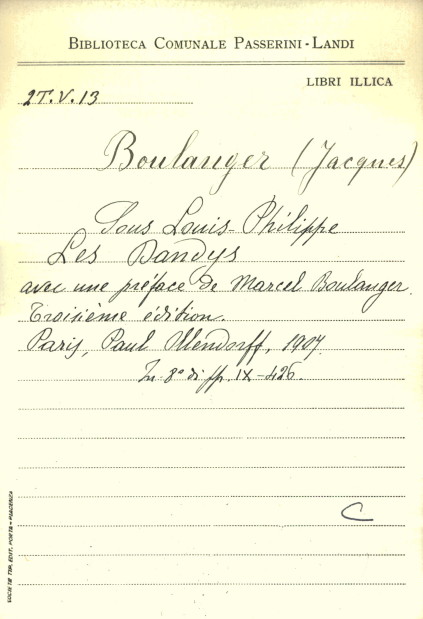 BIBLIOTECA COMUNALE PASSERINI-LANDI
LIBRI ILLICA
2T.V.13
Boulanger (Jacques)
Sous Louis-Philippe
Les Dandys
avec une préface de Marcel Boulanger.
Troisième édition.
Paris, Paul Ollendorff, 1907.
In-8° di pp. IX-426.
C
SOCIETÀ TIP. EDIT. PORTA - PIACENZA